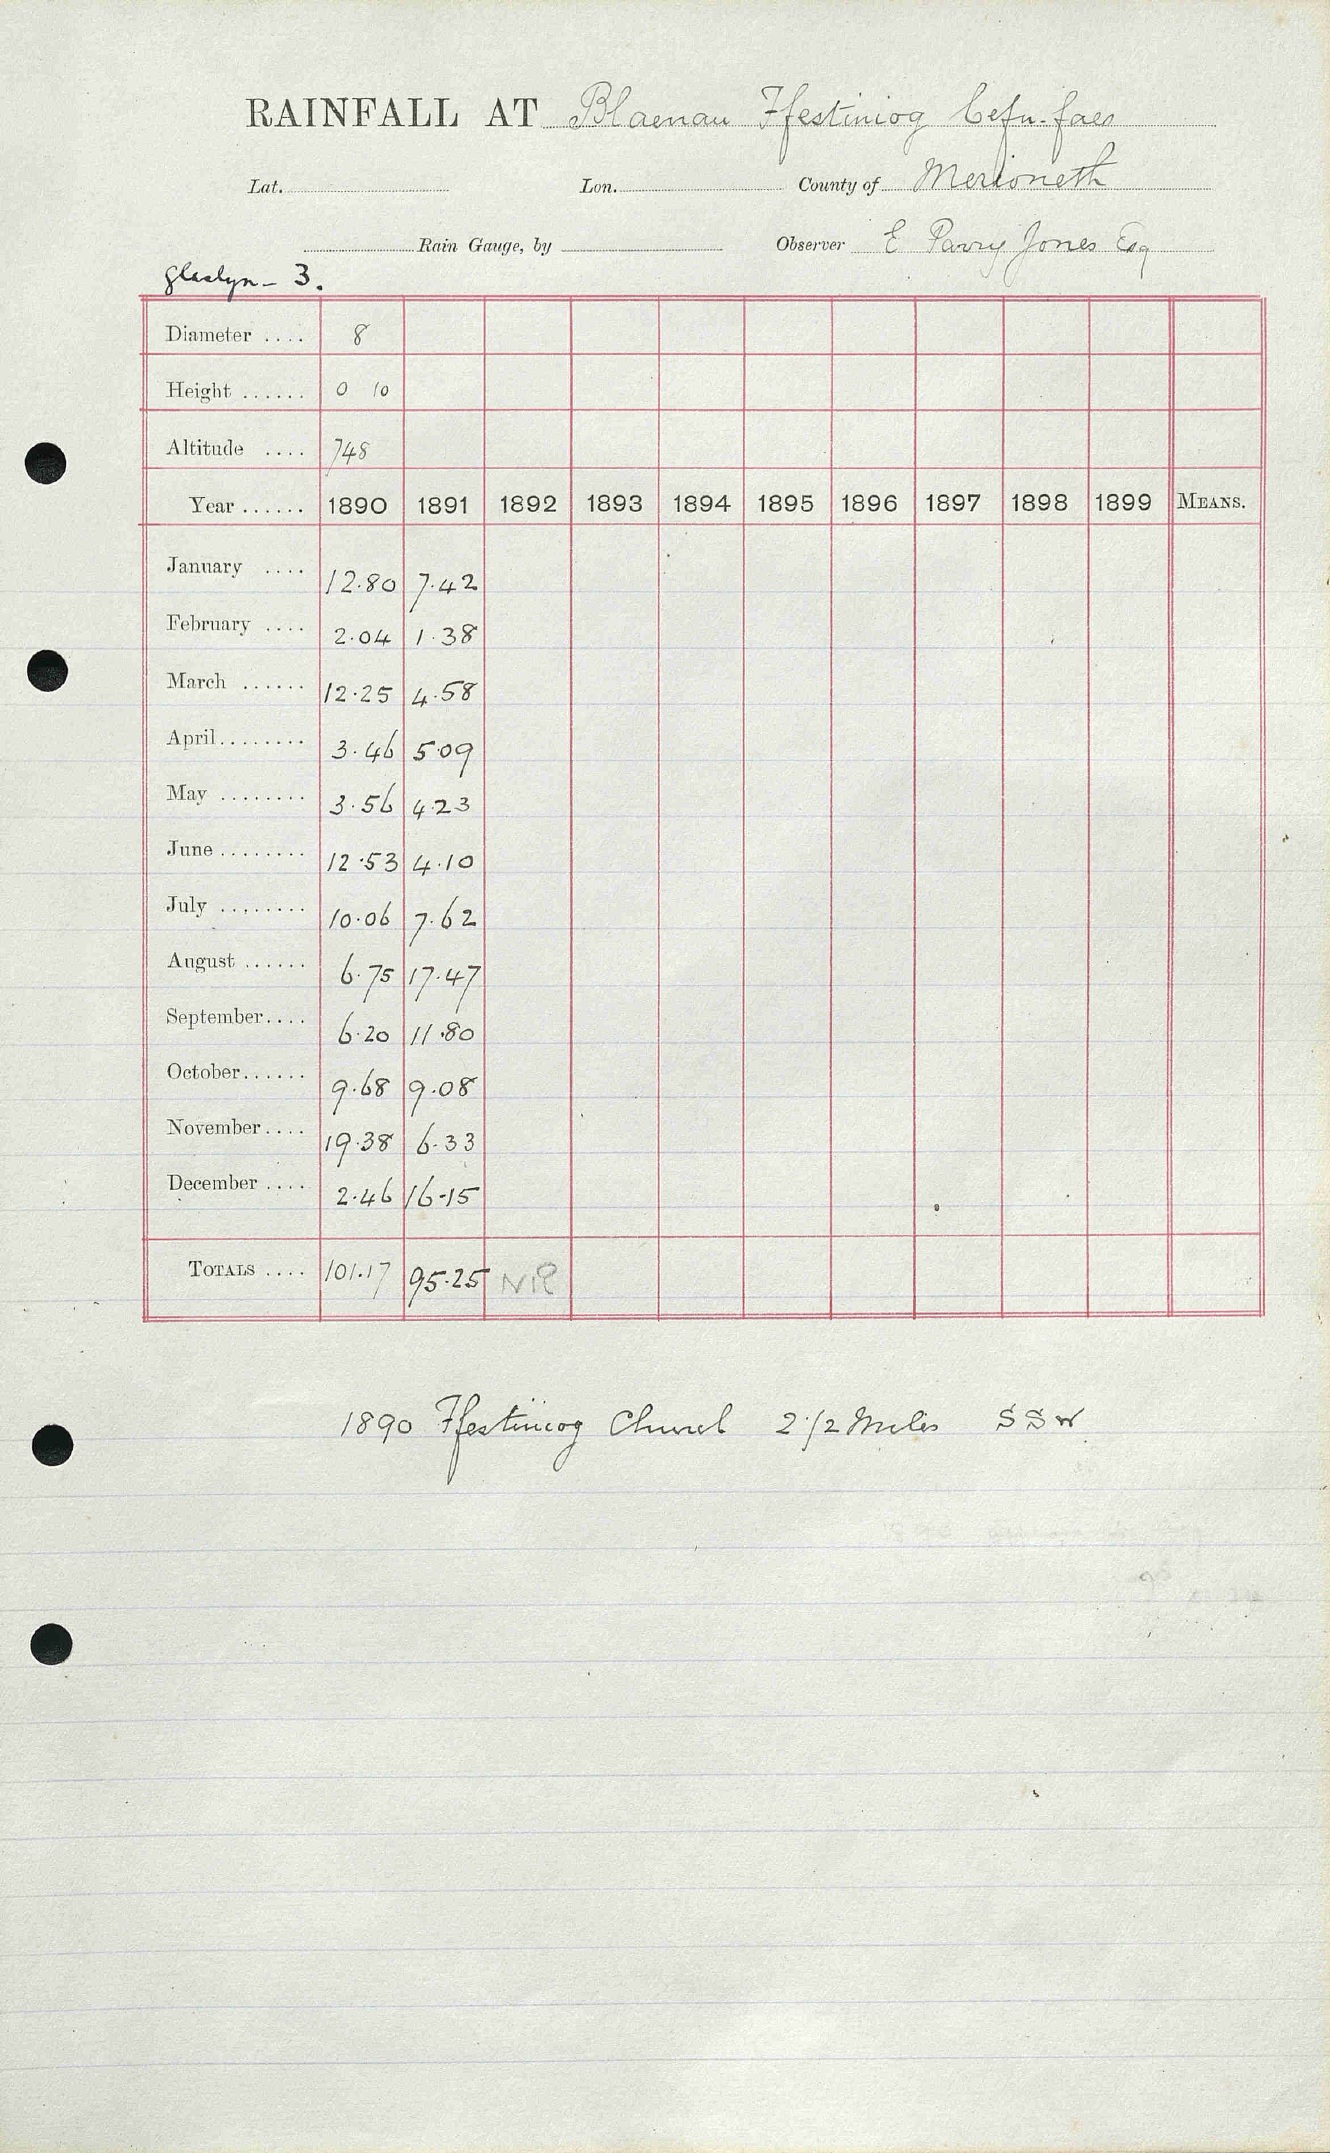 RAINFALL AT Blaenau Ffestiniog Cefn-faes
Lat. Lon. County of Merioneth
Rain Gauge, by Observer E Parry Jones Esq
Glaslyn - 3.
Diameter .... 8
Height ...... 0 10
Altitude .... 748
Year ...... 1890 1891 1892 1893 1894 1895 1896 1897 1898 1899 MEANS.
January .... 12.80 7.42
February .... 2.04 1.38
March ...... 12.25 4.58
April........ 3.46 5.09
May ........ 3.56 4.23
June........ 12.53 4.10
July ........ 10.06 7.62
August ...... 6.75 17.47
September.... 6.20 11.80
October...... 9.68 9.08
November.... 19.38 6.33
December .... 2.46 16.15
TOTALS .... 101.17 95.25 Nil
1890 Ffestiniog Church 2 1/2 Miles S S W